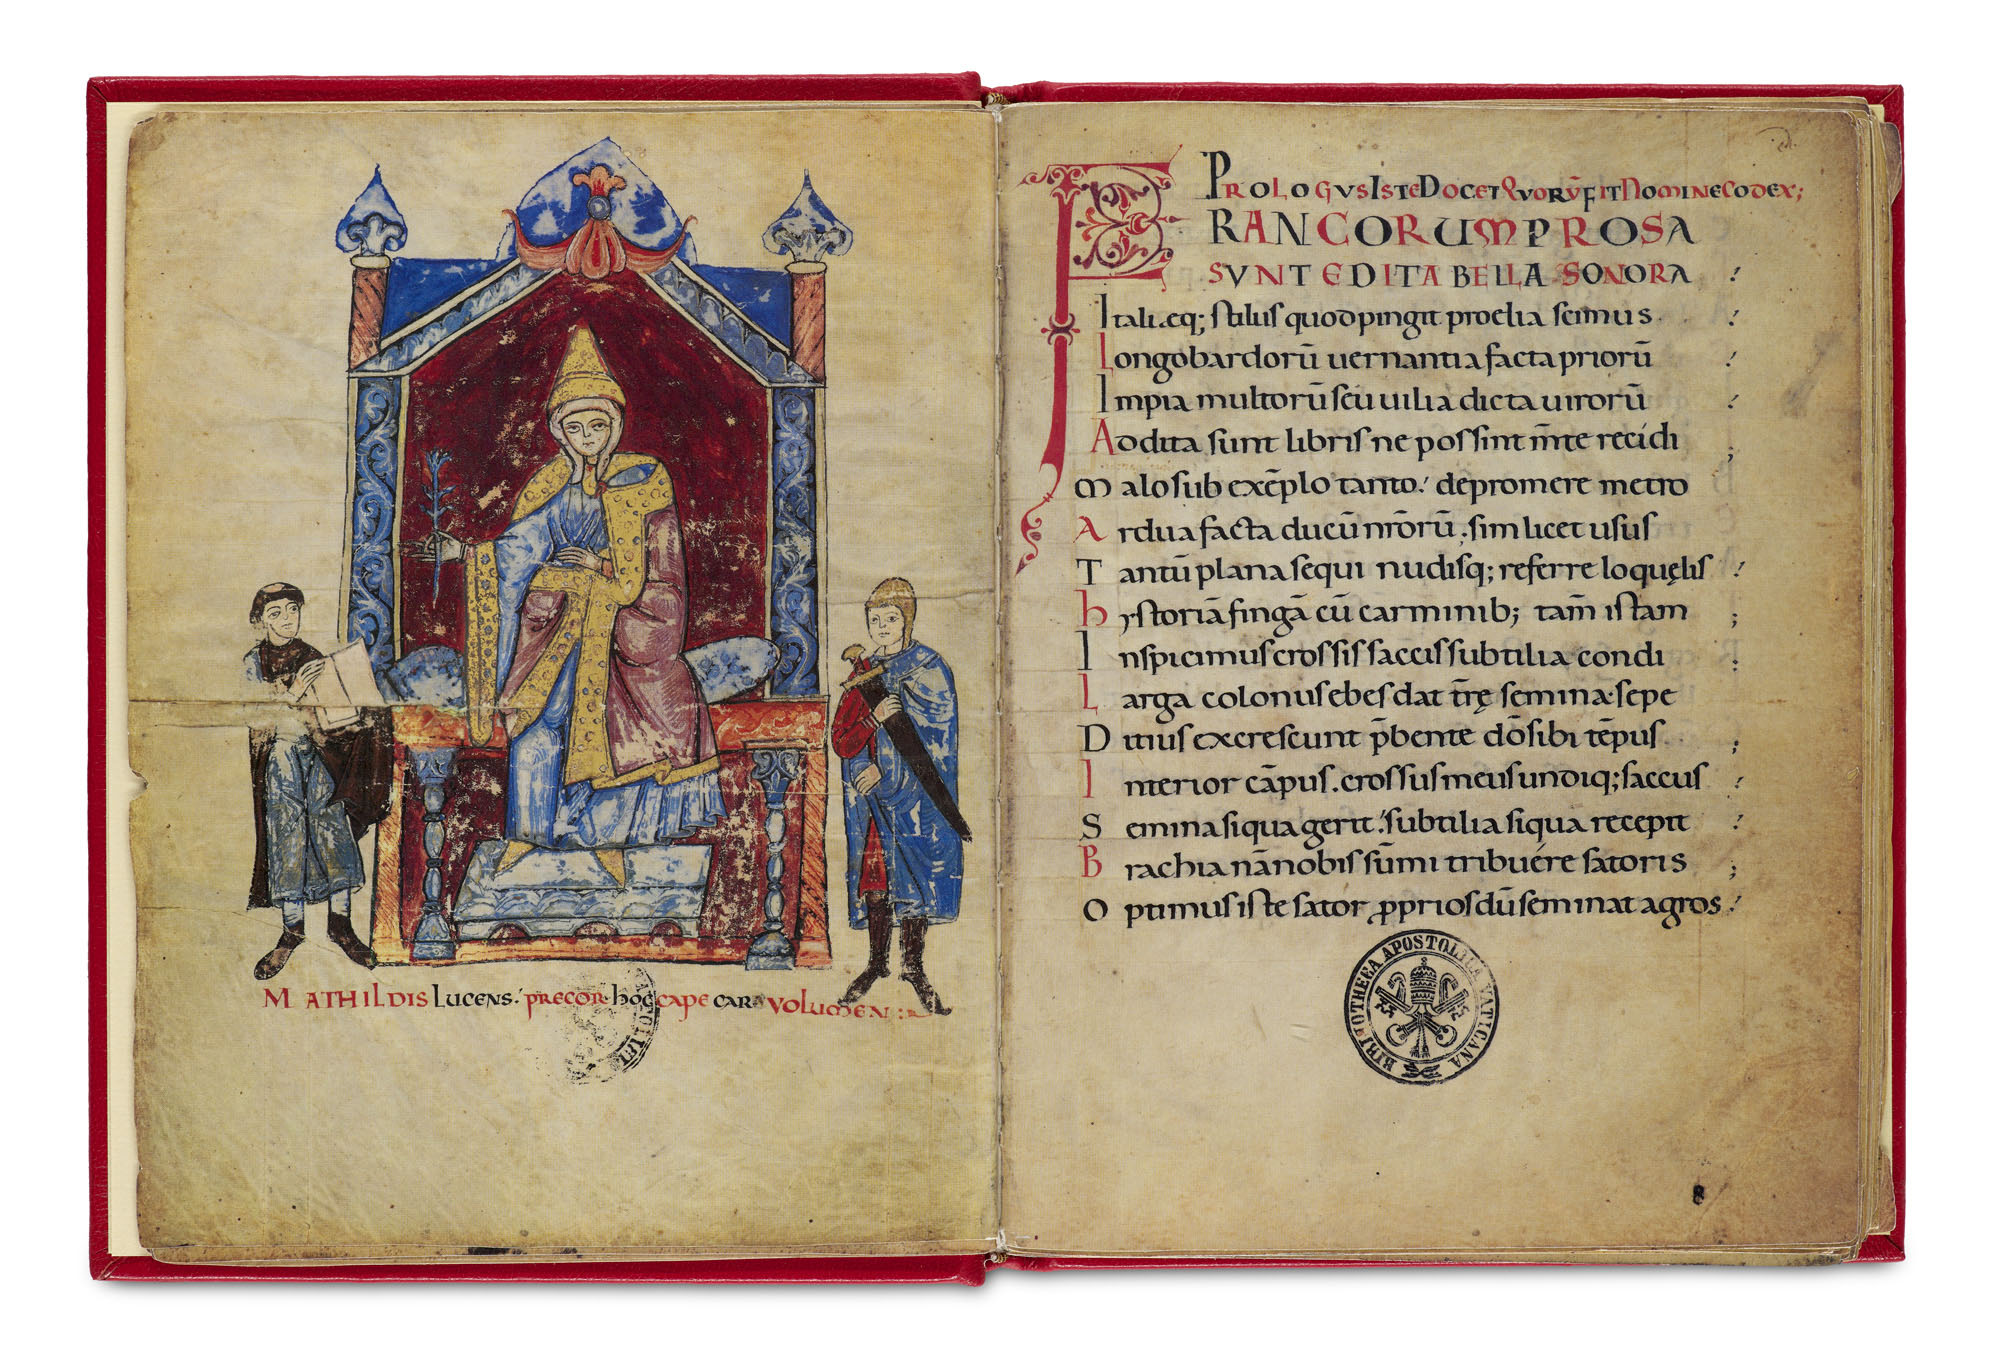 MATHILDIS LUCENS. PRECOR HOC CAPE CARA VOLUMEN :
PROLOGVS ISTE DOCET QVORŪ FIT NOMINE CODEX;
FRANCORUM PROSA
SVNT EDITA BELLA SONORA
Itali.eq; stilus quod pingit proelia scimus
Longobardorū uernantia facta priorū
Impia multorū seu uilia dicta uirorū
Addita sunt libris ne possint m̄te recidi ;
Malo sub exēplo tanto. depromere metro
Ardua facta ducū nr̄orū. sim licet usus
Tantū plana sequi nudisq; referre loquęlis
hystoriā fingā cū carminib; tam̄ istam ;
Inspicimus crossis saccis subtilia condi ;
Larga colonus ebes dat tr̄ę semina sępe
Ditius excrescunt p̄bente dō sibi tēpus ;
Interior cāpus. crossus meus undiq; saccus
Semina siqua gerit. subtilia siqua recepit
Brachia nā nobis sūmi tribuére satoris ;
Optimus iste sator ꝓprios dū seminat agros
BIBLIOTHECA APOSTOLICA VATICANA
8